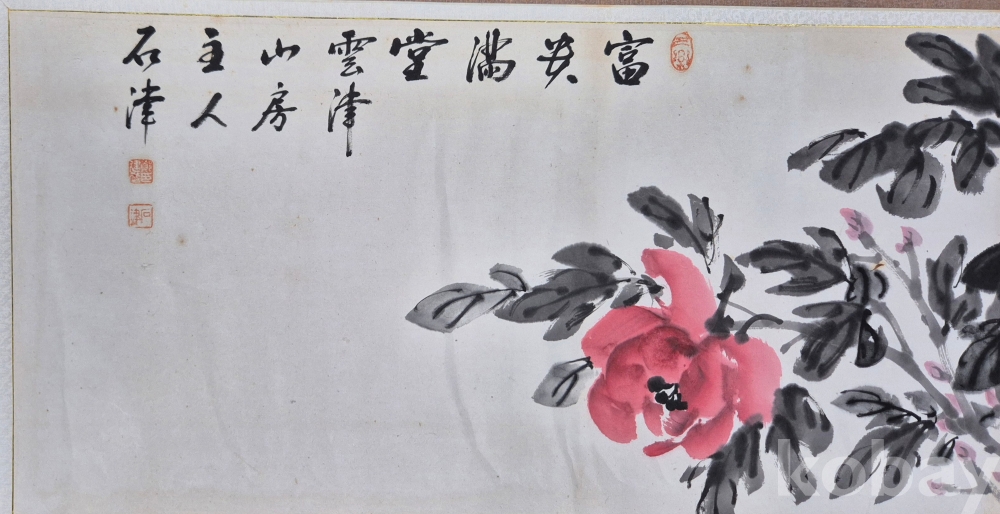 富貴滿堂
雲津
山房
主人
石津
kobay